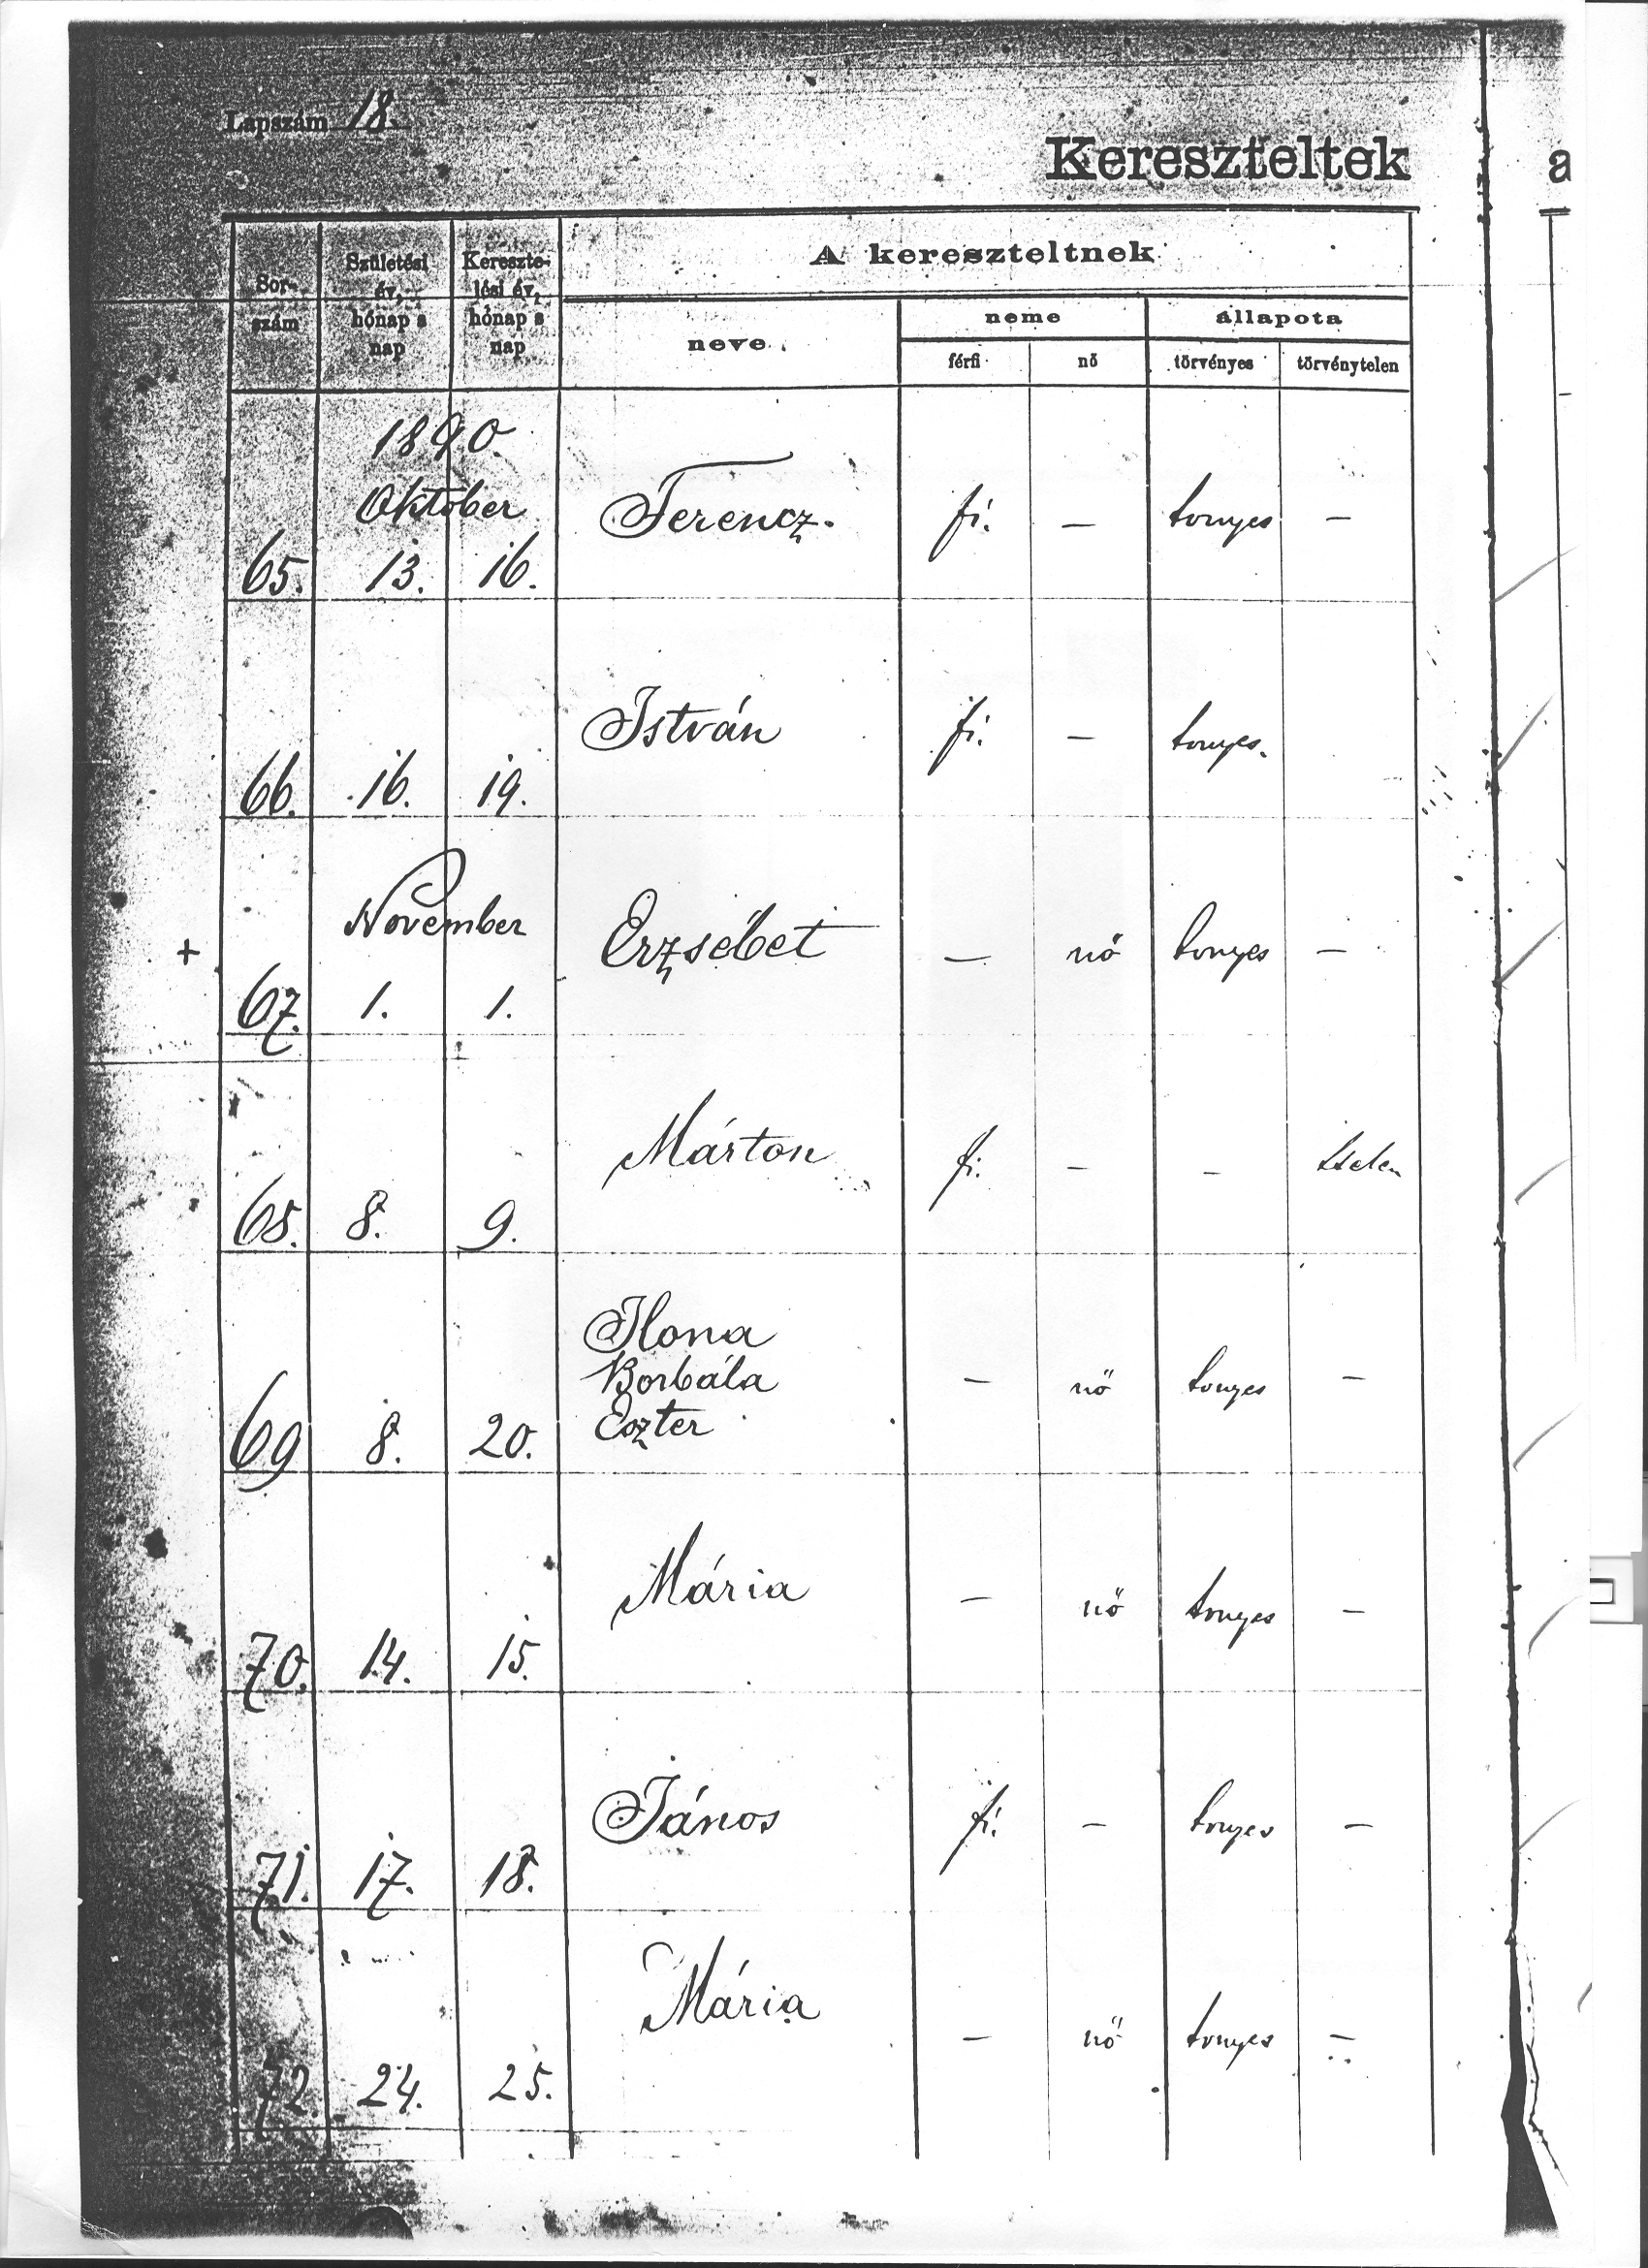 Lapszám 18.
Kereszteltek
a
Sor-
szám
Születési
év,
hónap s
nap
Kereszte-
lési év,
hónap s
nap
A kereszteltnek
neve
neme
állapota
férfi
nő
törvényes
törvénytelen
1890.
Október
65. 13. 16. Ferencz. fi. — tvnyes —
66. 16. 19. István fi. — tvnyes.
November
+ 67. 1. 1. Erzsébet — nő tvnyes —
68. 8. 9. Márton fi. — — ttelen
69 8. 20. Ilona
Borbála
Eszter — nő tvnyes —
70. 14. 15. Mária — nő tvnyes —
71. 17. 18. János fi. — tvnyes —
72. 24. 25. Mária — nő tvnyes —